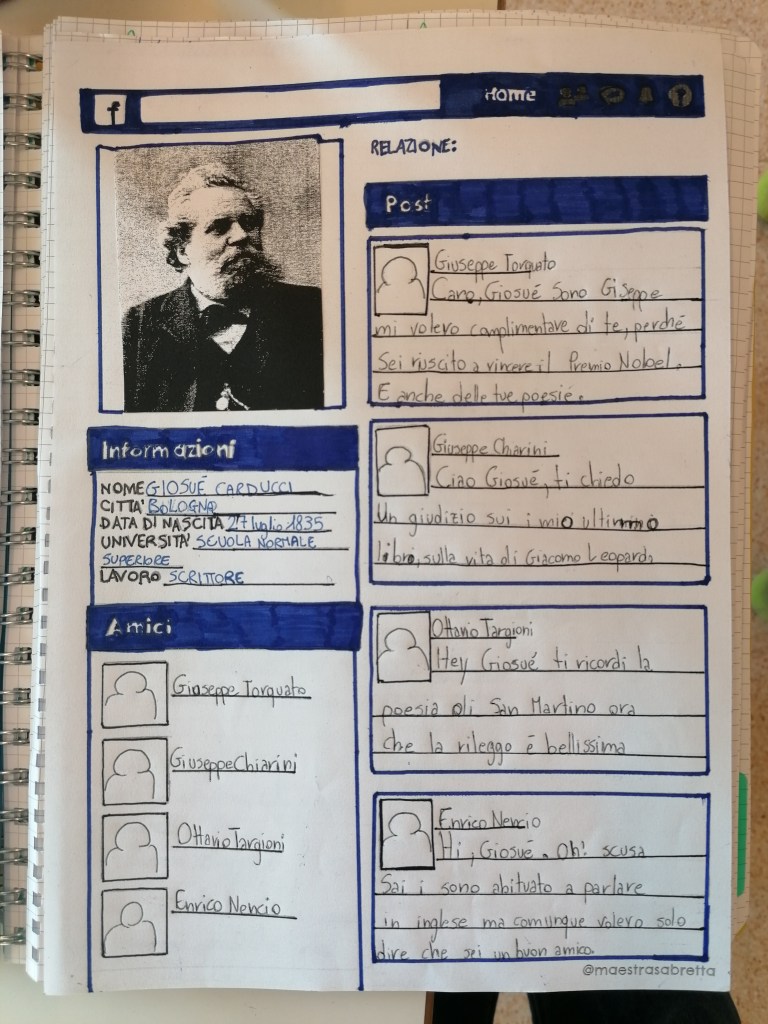 f
Home
RELAZIONE:
Informazioni
NOME GIOSUÉ CARDUCCI
CITTA' BOLOGNA
DATA DI NASCITA 27 luglio 1835
UNIVERSITA' SCUOLA NORMALE
SUPERIORE
LAVORO SCRITTORE
Amici
Giuseppe Torquato
Giuseppe Chiarini
Ottavio Targioni
Enrico Nencio
Post
Giuseppe Torquato
Caro, Giosué Sono Giseppe
mi volevo complimentare di te, perché
Sei riuscito a vincere il Premio Nobel.
E anche delle tue poesie.
Giuseppe Chiarini
Ciao Giosué, ti chiedo
Un giudizio sui i mio ultimo
libro, sulla vita di Giacomo Leopardi
Ottavio Targioni
Hey Giosué ti ricordi la
poesia di San Martino ora
che la rileggo é bellissima
Enrico Nencio
Hi, Giosué. Oh! scusa
Sai i sono abituato a parlare
in inglese ma comunque volevo solo
dire che sei un buon amico.
@maestrasabretta